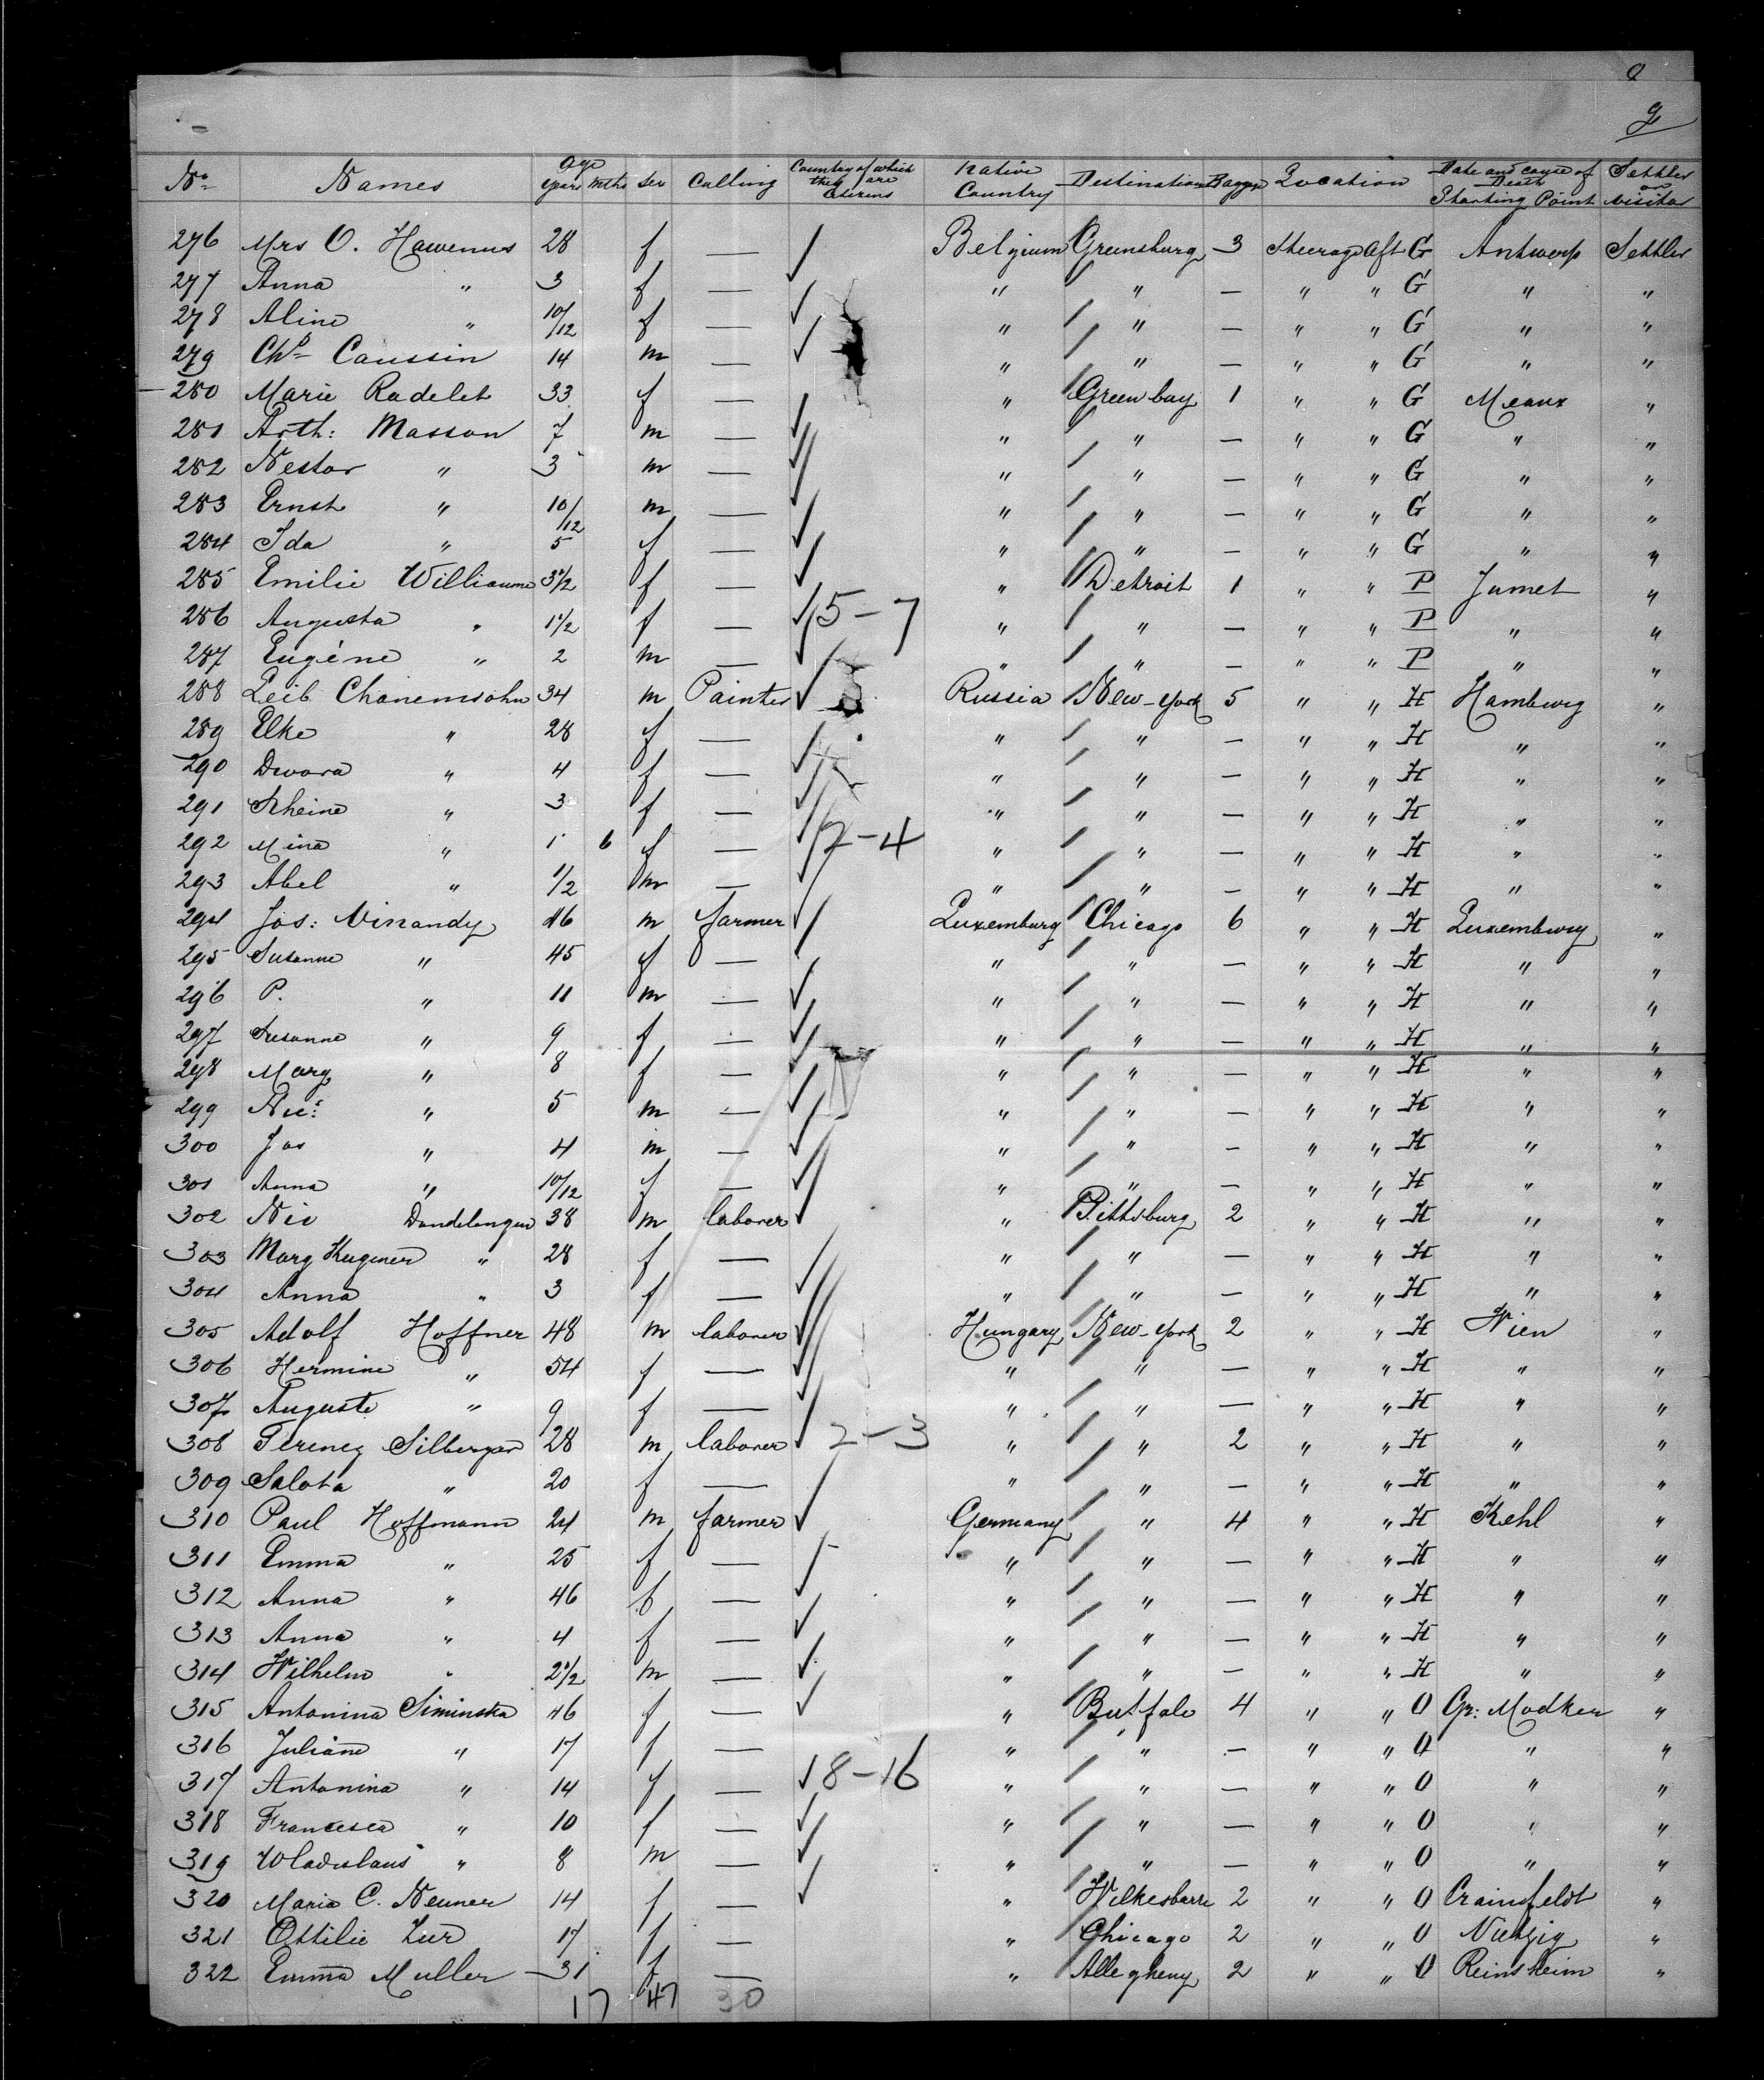 9
9
No Names Age years mths Sex Calling Country of which they are Citizens Native Country Destination Baggage Location Date and cause of Death Starting Point Settler or visitor
276 Mrs O. Hawenus 28 f — Belgium Greensburg 3 Steerage Aft G Antwerp Settler
277 Anna " 3 f — " " — " " G " "
278 Aline " 10/12 f — " " — " " G " "
279 Chs Caussin 14 m — " " — " " G " "
280 Marie Radelet 33 f — " Green bay 1 " " G Meaux "
281 Arth: Masson 7 m — " " — " " G " "
282 Nestor " 3 m — " " — " " G " "
283 Ernst " 10/12 m — " " — " " G " "
284 Ida " 5 f — " " — " " G " "
285 Emilie Williaume 3 1/2 f — " Detroit 1 " " P Jumet "
286 Augusta " 1 1/2 f — 5-7 " " — " " P " "
287 Eugéne " 2 m — " " — " " P " "
288 Leib Chanemsohn 34 m Painter Russia New-York 5 " " H Hamburg "
289 Elke " 28 f — " " — " " H " "
290 Dwora " 4 f — " " — " " H " "
291 Scheine " 3 f — " " — " " H " "
292 Mina " 1 6 f — 2-4 " " — " " H " "
293 Abel " 1/2 m — " " — " " H " "
294 Jos: Winandy 46 m farmer Luxemburg Chicago 6 " " H Luxemburg "
295 Susanne " 45 f — " " — " " H " "
296 P. " 11 m — " " — " " H " "
297 Susanne " 9 f — " " — " " H " "
298 Marg " 8 f — " " — " " H " "
299 Nic: " 5 m — " " — " " H " "
300 Jos " 4 m — " " — " " H " "
301 Anna " 10/12 f — " " — " " H " "
302 Nic Dondelenger 38 m laborer " Pittsburg 2 " " H " "
303 Marg Kugener " 28 f — " " — " " H " "
304 Anna " 3 f — " " — " " H " "
305 Adolf Hoffner 48 m laborer Hungary New-York 2 " " H Wien "
306 Hermine " 54 f — " " — " " H " "
307 Auguste " 9 f — " " — " " H " "
308 Ferencz Silberger 28 m laborer 2-3 " " 2 " " H " "
309 Salota " 20 f — " " — " " H " "
310 Paul Hoffmann 24 m farmer Germany " 4 " " H Kehl "
311 Emma " 25 f — " " — " " H " "
312 Anna " 46 f — " " — " " H " "
313 Anna " 4 f — " " — " " H " "
314 Wilhelm " 2 1/2 m — " " — " " H " "
315 Antonina Siminska 46 f — " Buffalo 4 " " O Gr: Modken "
316 Juliane " 17 f — " " — " " O " "
317 Antonina " 14 f — 8-16 " " — " " O " "
318 Francesca " 10 f — " " — " " O " "
319 Wladislaus " 8 m — " " — " " O " "
320 Maria C. Neuner 14 f — " Wilkesbarre 2 " " O Crainsfeldt "
321 Ottilie Zur 17 f — " Chicago 2 " " O "
322 Emma Muller 31 f — " Allegheny 2 " " O Reinsheim "
17 47 30